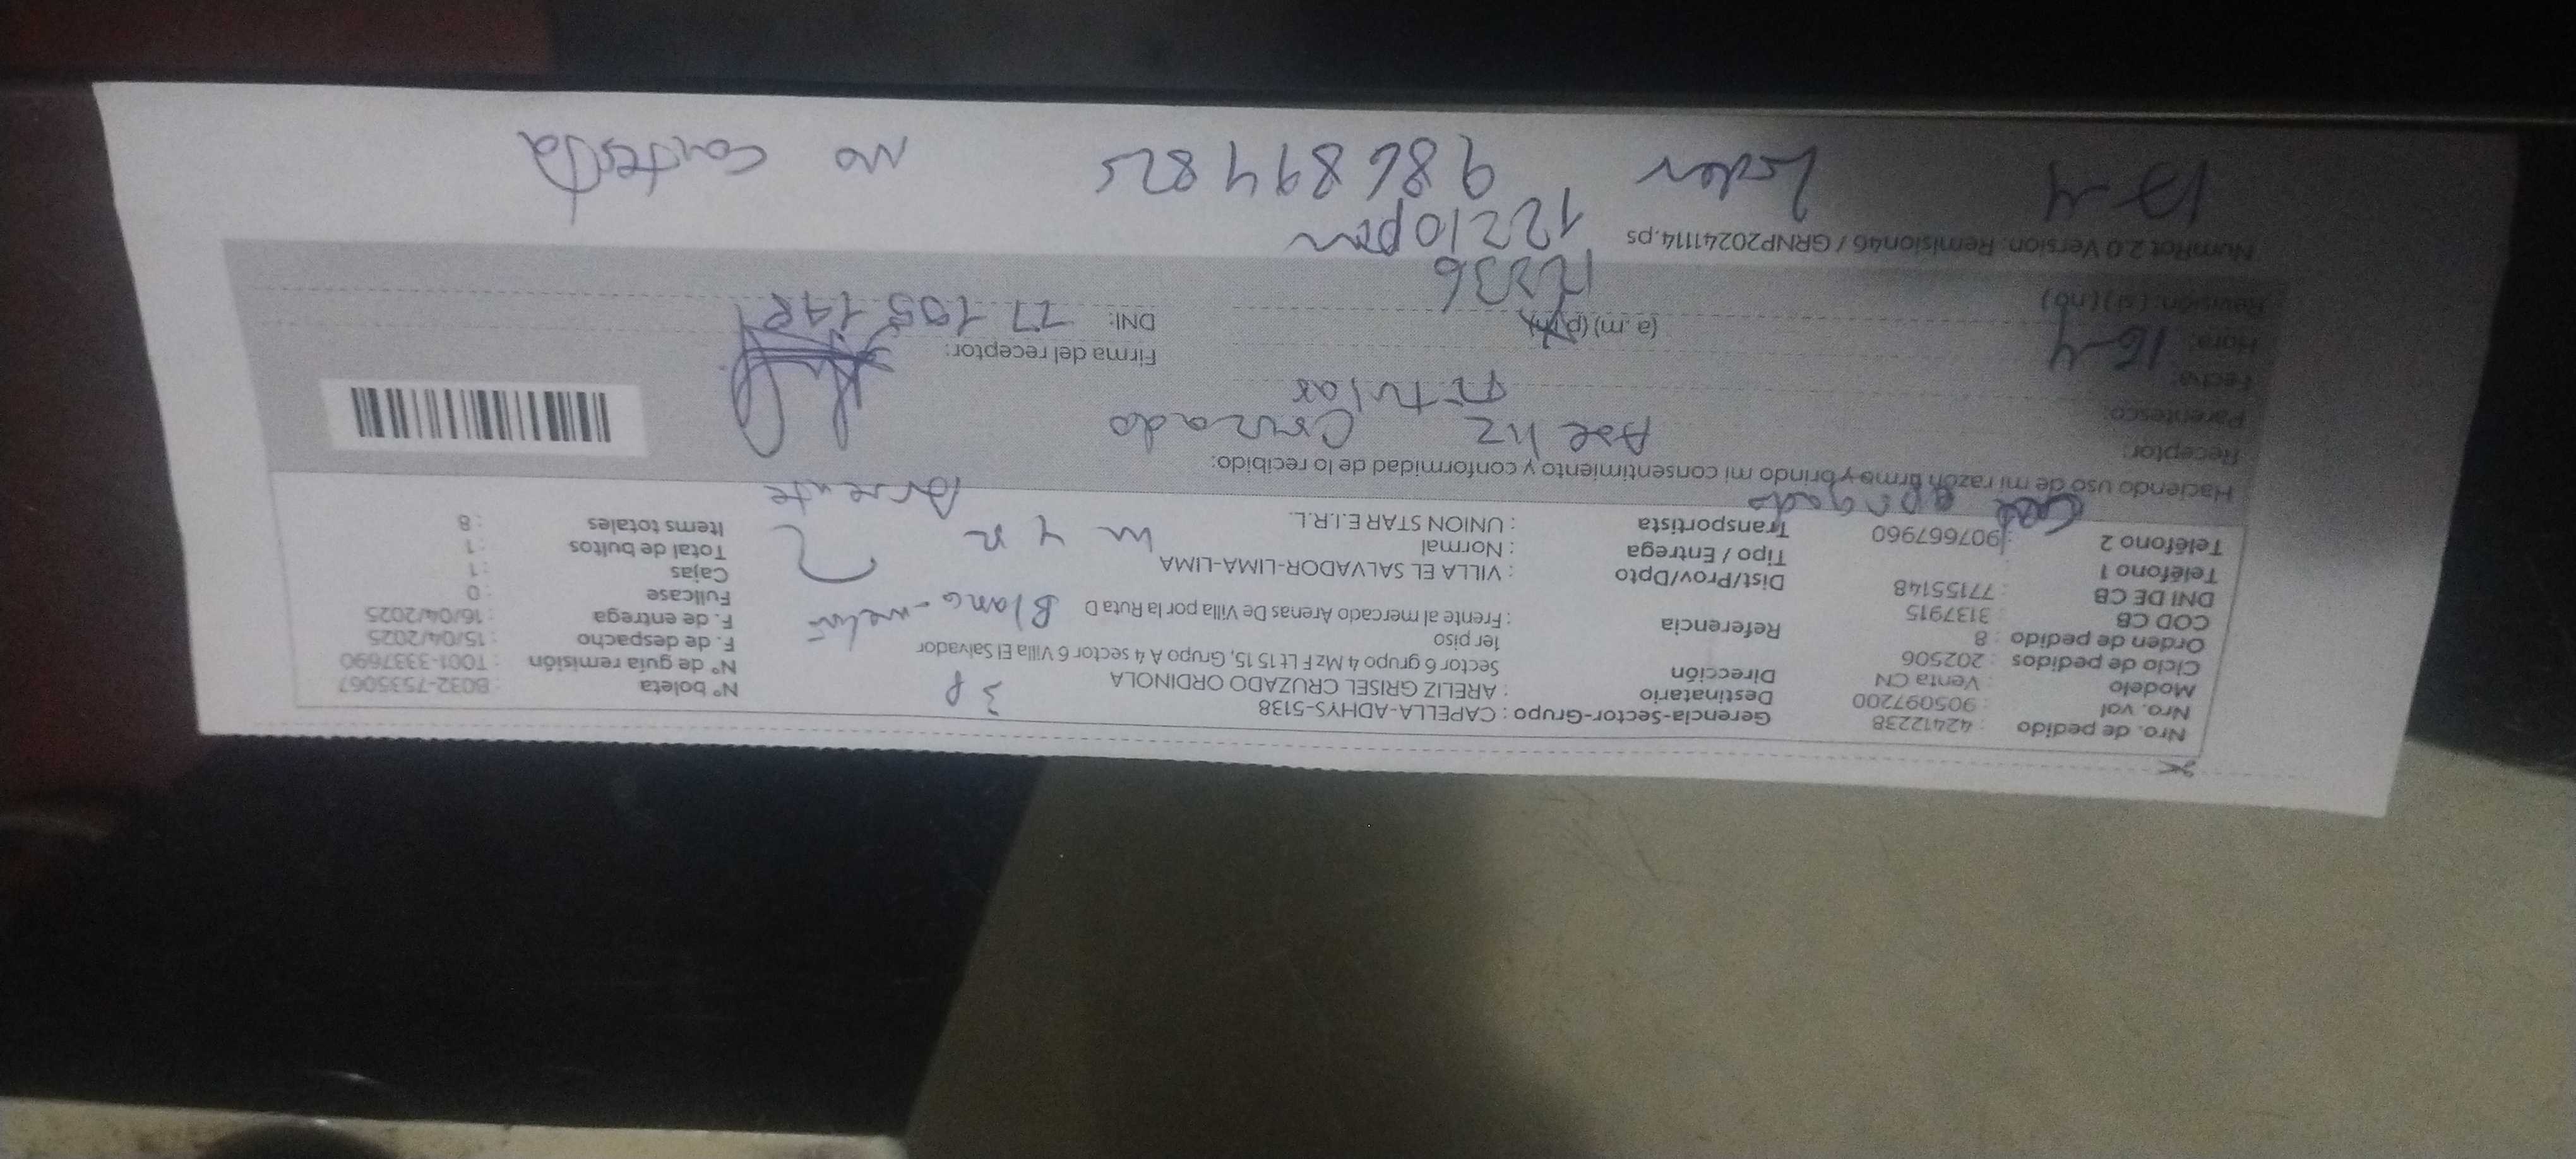 Nro. de pedido : 42412238 Gerencia-Sector-Grupo : CAPELLA-ADHYS-5138 Nº boleta : B032-7535067
Nro. val : 905097200 Destinatario : ARELIZ GRISEL CRUZADO ORDINOLA 3P Nº de guía remisión : T001-3337690
Modelo : Venta CN Dirección Sector 6 grupo 4 Mz F Lt 15 15, Grupo A 4 sector 6 Villa El Salvador F. de despacho : 15/04/2025
Ciclo de pedidos : 202506 1er piso F. de entrega : 16/04/2025
Orden de pedido : 8 Referencia : Frente al mercado Arenas De Villa por la Ruta D Blanco Fullcase : 0
COD CB : 3137915 Dist/Prov/Dpto : VILLA EL SALVADOR-LIMA-LIMA Cajas : 1
DNI DE CB : 77155148 Tipo / Entrega : Normal Total de bultos : 1
Teléfono 1 Transportista : UNION STAR E.I.R.L. Items totales : 8
Teléfono 2 : 907667960
apagado
Haciendo uso de mi razón firmo y brindo mi consentimiento y conformidad de lo recibido:
Receptor: Areliz Cruzado
Parentesco: Titular
Fecha: 16-4 Firma del receptor:
Hora: (a.m) (p.m) DNI:
Revisión: (si) (no) 12:36
NumRot 2.0 Version: Remision46 / GRNP20241114.ps 12:10pm
17-4 986894825 no contesta